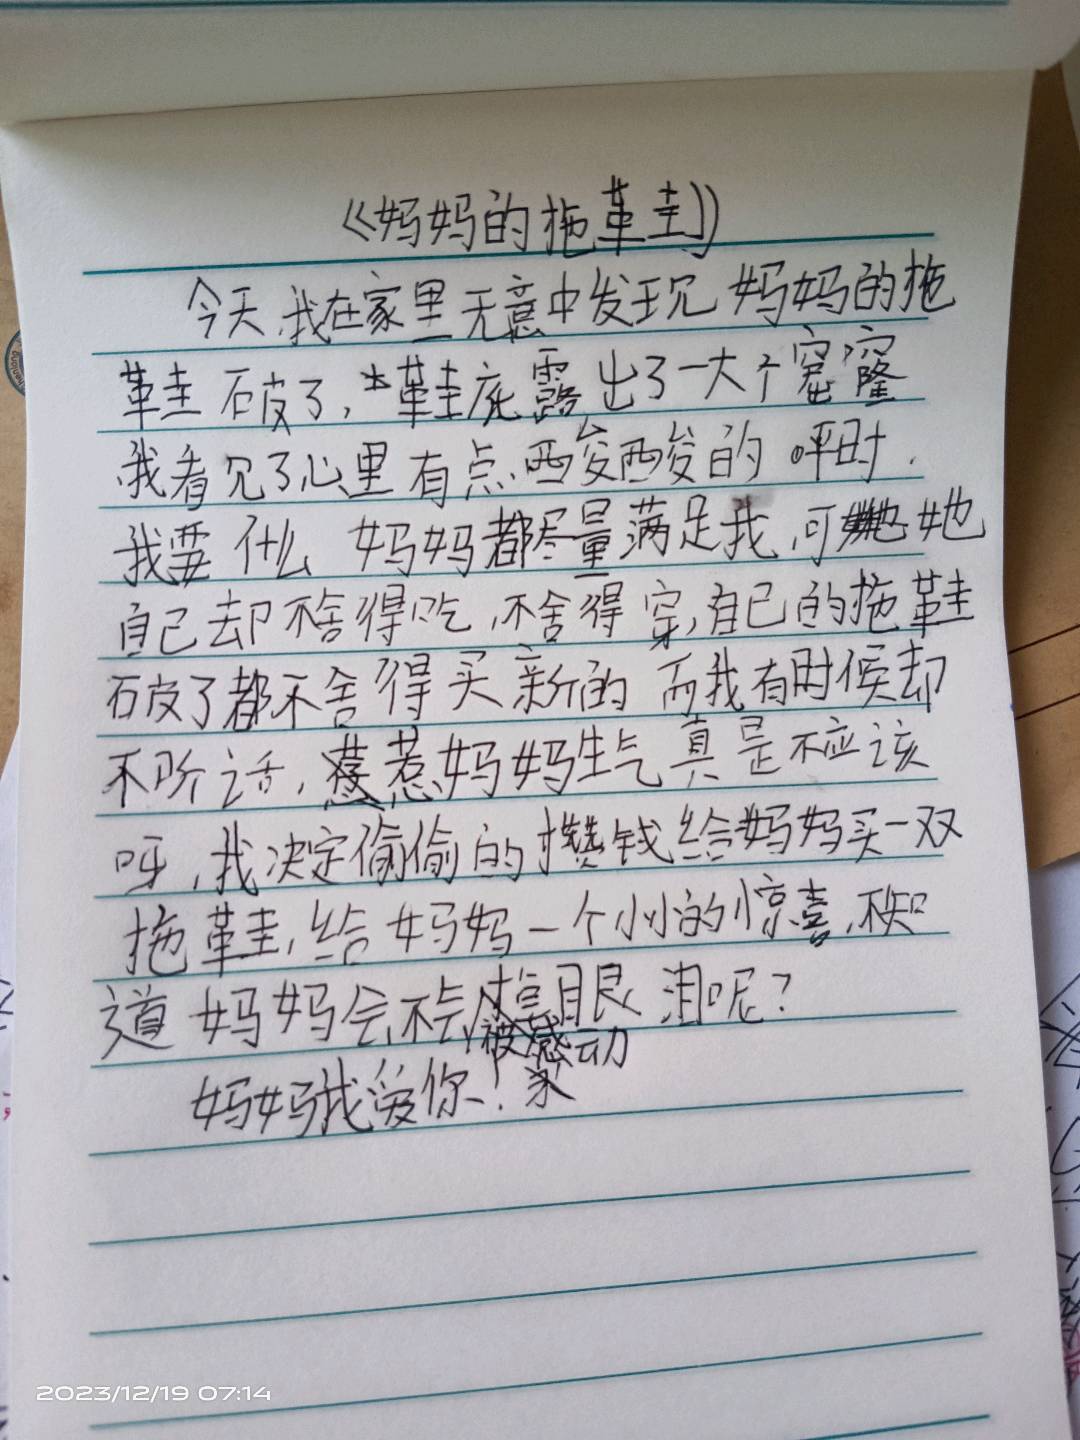 《妈妈的拖鞋》
今天,我在家里无意中发现妈妈的拖
鞋破了,鞋底露出了一大个窟窿
我看见了心里有点酸酸的呼时.
我要什么 妈妈都尽量满足我,可她
自己却不舍得吃,不舍得穿,自己的拖鞋
破了都不舍得买新的 而我有时候却
不听话,惹妈妈生气真是不应该
呀,我决定偷偷的攒钱给妈妈买一双
拖鞋,给妈妈一个小小的惊喜,不知
道妈妈会不会 眼泪呢?
被感动
妈妈我爱你!
2023/12/19 07:14